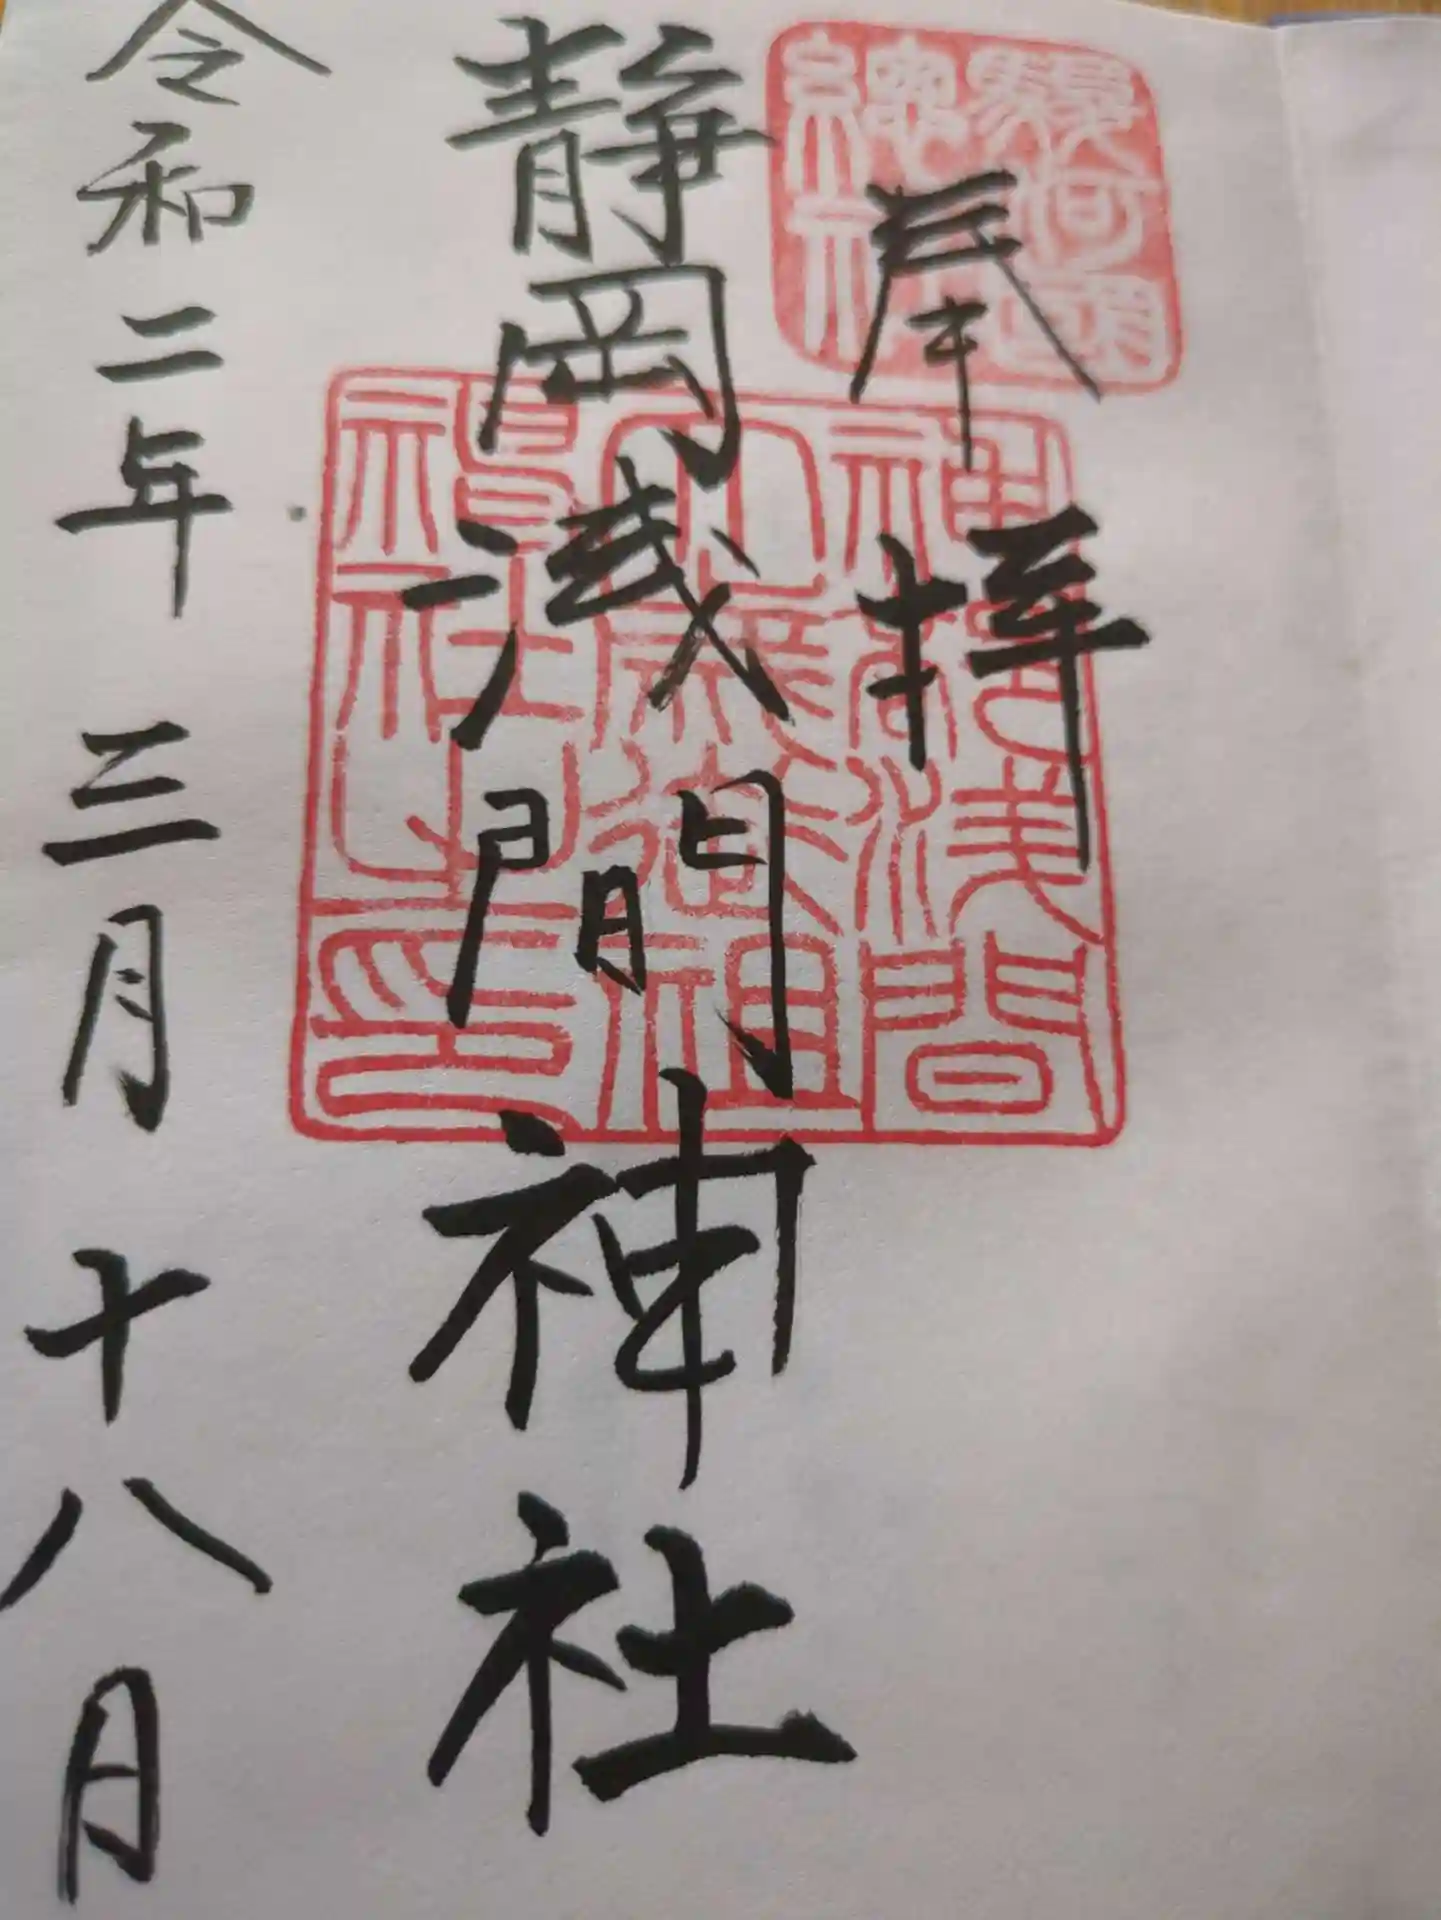 奉拝
静岡浅間神社
令和二年三月十八日
駿河國
總社
神部浅間
大歳御祖
神社之印